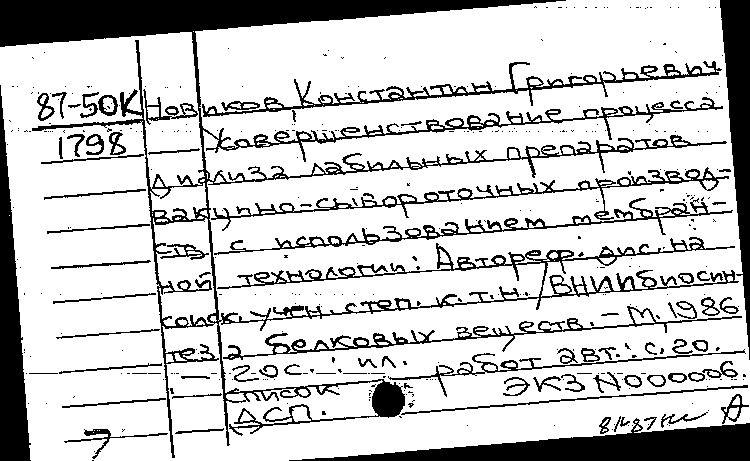 87-50К Новиков, Константин Григорьевич
1798 Усовершенствование процесса
диализа лабильных препаратов
вакцинно-сывороточных производ-
ств с использованием мембран-
ной технологии: Автореф. дис. на
соиск. учен. степ. к.т.н. / ВНИИбиосин-
теза белковых веществ. - М., 1986
- 20 с.: ил.
список работ авт.: с. 20.
ДСП. ЭКЗ N000006.